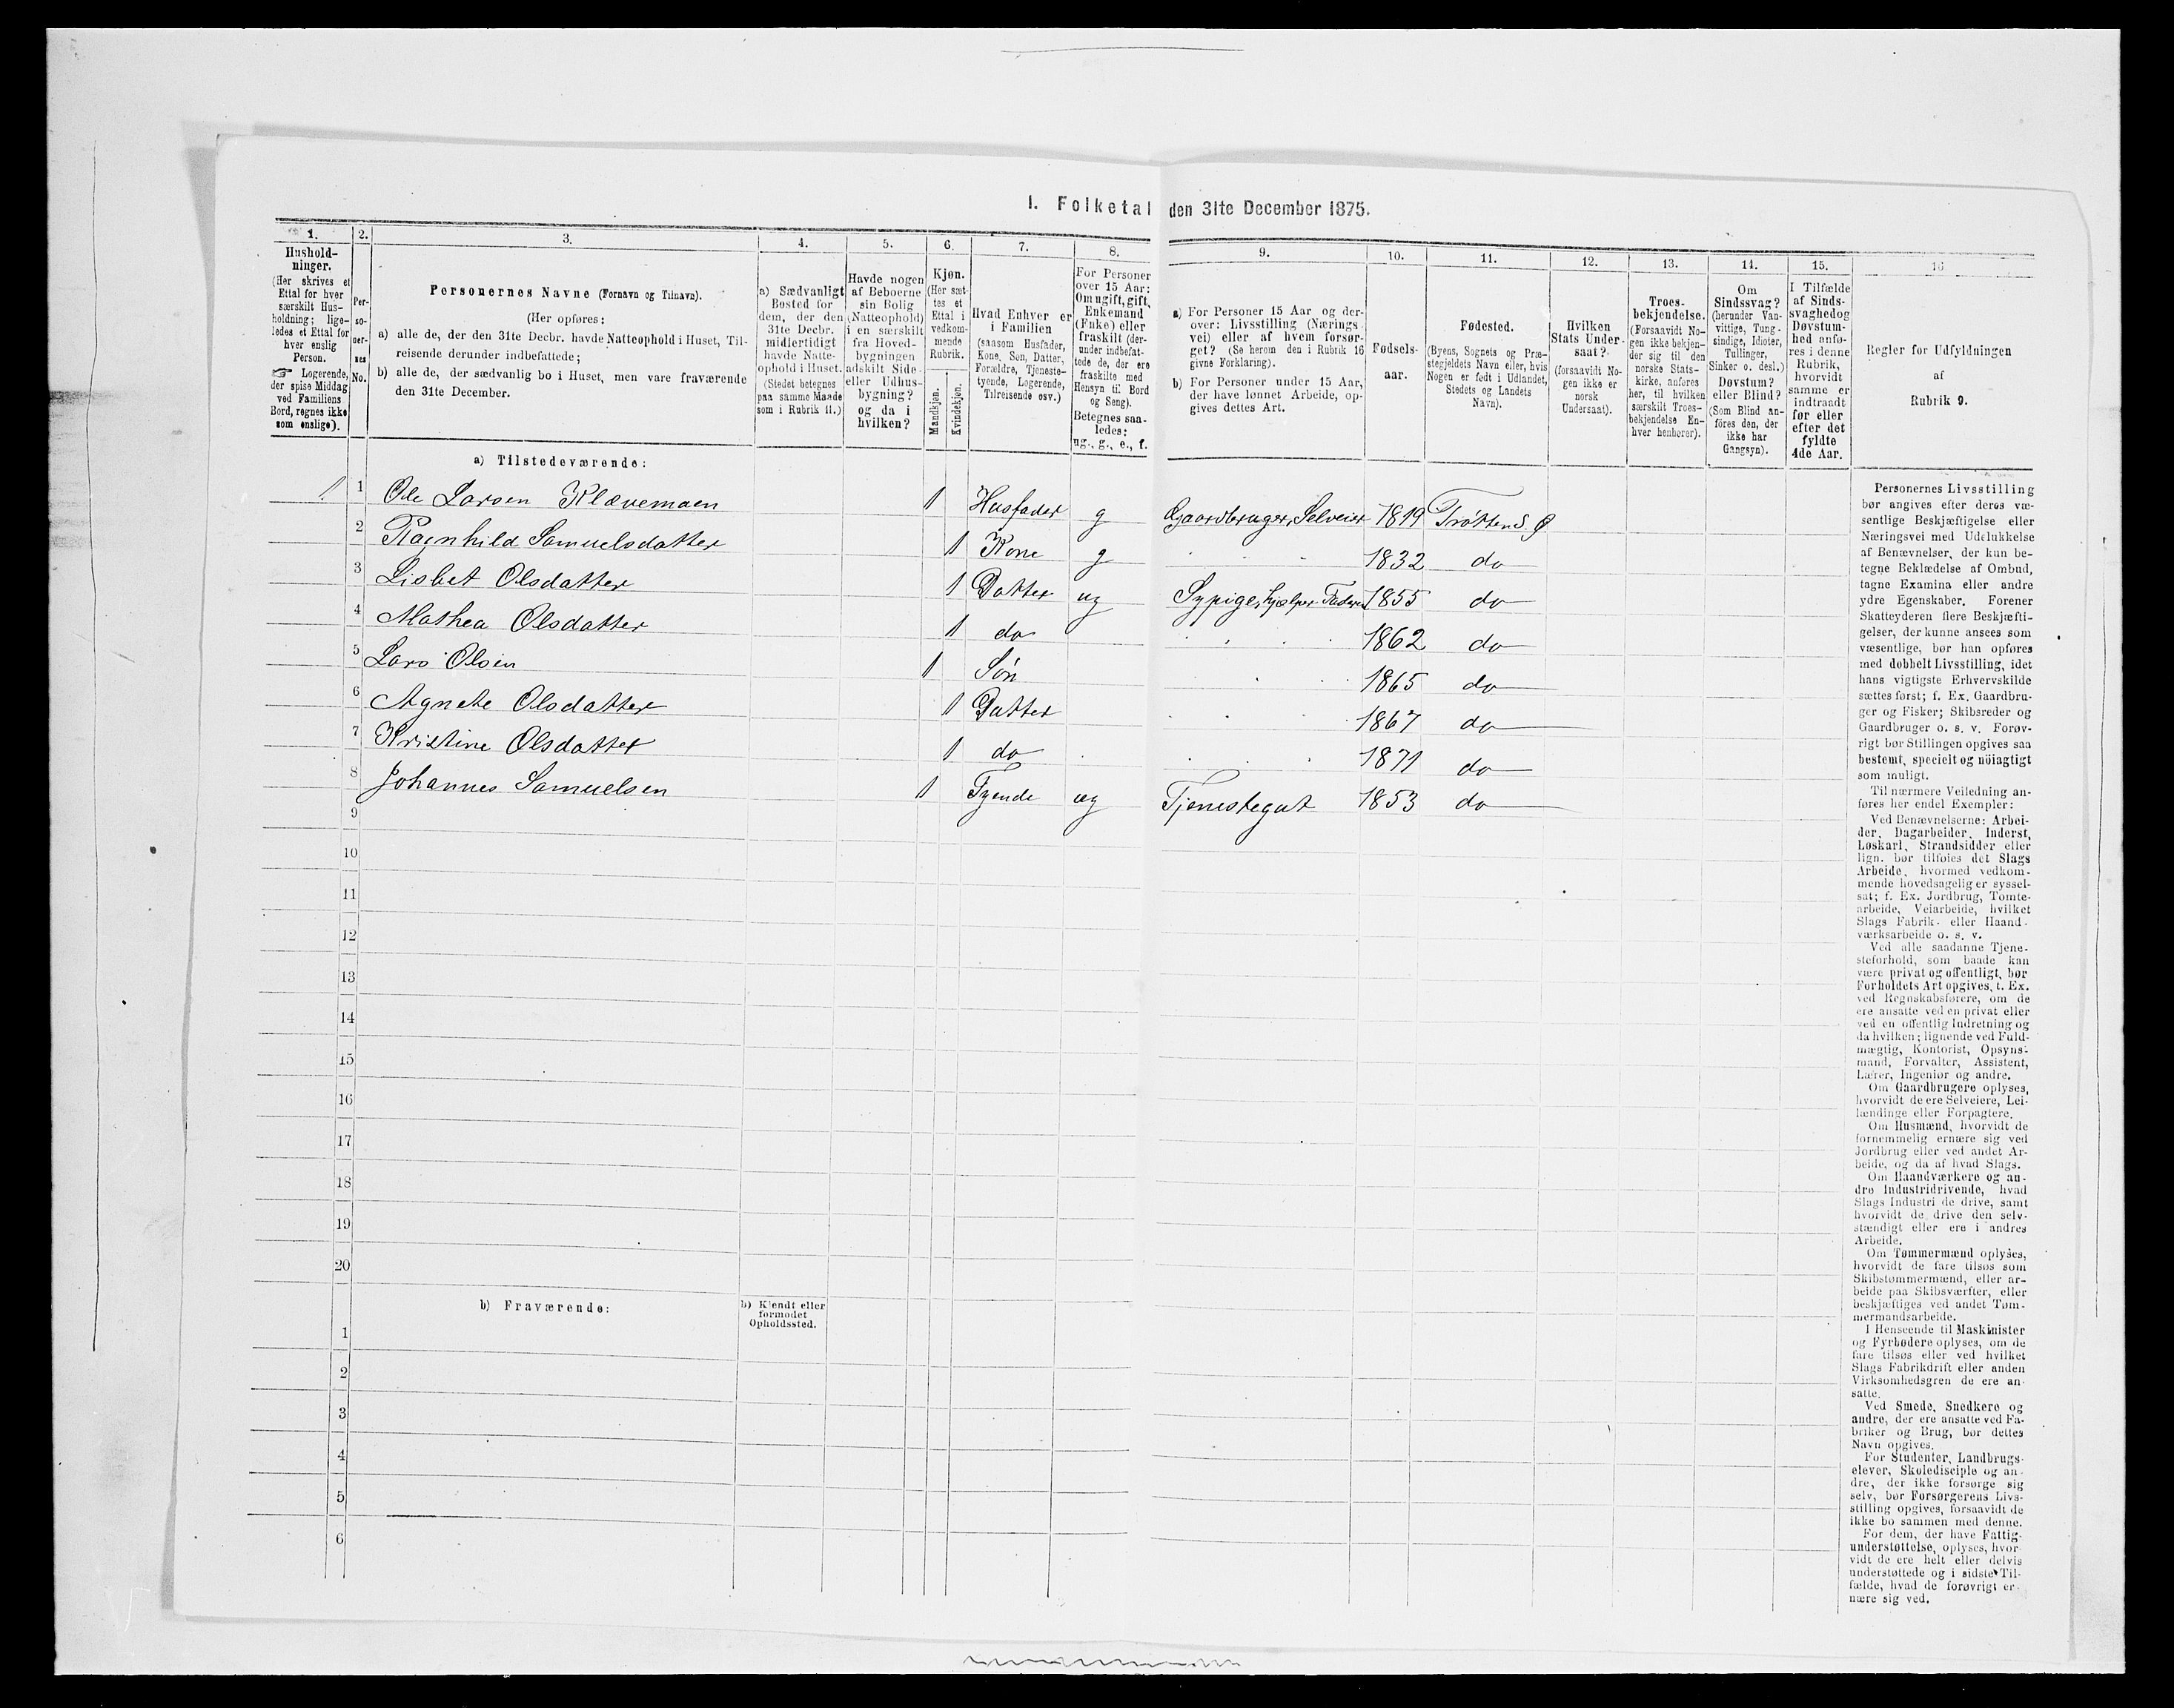 1. Folketal den 31te December 1875.
1. 2. 3. 4. 5. 6. 7. 8. 9. 10. 11. 12. 13. 14. 15. 16
Hushold-
ninger.
(Her skrives et
Ettal for hver
særskilt Hus-
holdning; lige-
ledes et Ettal for
hver enslig
Person.
☞ Logerende,
der spise Middag
ved Familiens
Bord, regnes ikke
som enslige).
Per-
so-
ner-
nes
No.
Personernes Navne (Fornavn og Tilnavn).
(Her opføres:
a) alle de, der den 31te Decbr. havde Natteophold i Huset, Til-
reisende derunder indbefattede;
b) alle de, der sædvanlig bo i Huset, men vare fraværende
den 31te December.
a) Sædvanligt
Bosted for
dem, der den
31te Decbr.
midlertidigt
havde Natte-
ophold i Huset.
(Stedet betegnes
paa samme Maade
som i Rubrik 11.)
Havde nogen
af Beboerne
sin Bolig
(Natteophold)
i en særskilt
fra Hoved-
bygningen
adskilt Side-
eller Udhus-
bygning?
og da i
hvilken?
Kjøn.
(Her sæt-
tes et
Ettal i
vedkom-
mende
Rubrik.
Mandkjøn.
Kvindekjøn.
Hvad Enhver er
i Familien
(saasom Husfader,
Kone, Søn, Datter,
Forældre, Tjeneste-
tyende, Logerende,
Tilreisende osv.)
For Personer
over 15 Aar:
Om ugift, gift,
Enkemand
(Enke) eller
fraskilt (der-
under indbefat-
tede de, der ere
fraskilte med
Hensyn til Bord
og Seng).
Betegnes saa-
ledes:
ug., g., e., f.
a) For Personer 15 Aar og der-
over: Livsstilling (Nærings-
vei) eller af hvem forsør-
get? (Se herom den i Rubrik 16
givne Forklaring).
b) For Personer under 15 Aar,
der have lønnet Arbeide, op-
gives dettes Art.
Fødsels-
aar.
Fødested.
(Byens, Sognets og Præ-
stegjeldets Navn eller, hvis
Nogen er født i Udlandet,
Stedets og Landets
Navn).
Hvilken
Stats Under-
saat?
(forsaavidt No-
gen ikke er
norsk
Undersaat).
Troes-
bekjendelse.
(Forsaavidt No-
gen ikke bekjen-
der sig til den
norske Stats-
kirke, anføres
her, til hvilken
særskilt Troes-
bekjendelse En-
hver henhører).
Om
Sindssvag?
(herunder Van-
vittige, Tung-
sindige, Idioter,
Tullinger,
Sinker o. desl.)
Døvstum?
eller Blind?
(Som Blind an-
føres den, der
ikke har
Gangsyn).
I Tilfælde
af Sinds-
svaghed og
Døvstum-
hed anfø-
res i denne
Rubrik,
hvorvidt
samme er
indtraadt
før eller
efter det
fyldte
4de Aar.
Regler for Udfyldningen
af
Rubrik 9.
a) Tilstedeværende:
1 1 Ole Larsen Klævemoen 1 Husfader g Gaardbruger, Selveier 1819 Trötten S. Ø
2 Ragnhild Samuelsdatter 1 Kone g 1832 do
3 Lisbet Olsdatter 1 Datter ug Sypige, hjelper Faderen 1855 do
4 Mathea Olsdatter 1 do 1862 do
5 Lars Olsen 1 Sön 1865 do
6 Agnete Olsdatter 1 Datter 1867 do
7 Kristine Olsdatter 1 do 1871 do
8 Johannes Samuelsen 1 Tyende ug Tjenestegut 1853 do
9
10
11
12
13
14
15
16
17
18
19
20
b) Fraværende: b) Kjendt eller
formodet
Opholdssted.
1
2
3
4
5
6
Personernes Livsstilling
bør angives efter deres væ-
sentlige Beskjæftigelse eller
Næringsvei med Udelukkelse
af Benævnelser, der kun be-
tegne Beklædelse af Ombud,
tagne Examina eller andre
ydre Egenskaber. Forener
Skatteyderen flere Beskjæfti-
gelser, der kunne ansees som
væsentlige, bør han opføres
med dobbelt Livsstilling, idet
hans vigtigste Erhvervskilde
sættes først; f. Ex. Gaardbru-
ger og Fisker; Skibsreder og
Gaardbruger o. s. v. Forøv-
rigt bør Stillingen opgives saa
bestemt, specielt og nöiagtigt
som muligt.
Til nærmere Veiledning an-
føres her endel Exempler:
Ved Benævnelserne: Arbei-
der, Dagarbeider, Inderst,
Løskarl, Strandsidder eller
lign. bør tilføies det Slags
Arbeide, hvormed vedkom-
mende hovedsagelig er syssel-
sat; f. Ex. Jordbrug, Tomte-
arbeide, Veiarbeide, hvilket
Slags Fabrik- eller Haand-
værksarbeide o. s. v.
Ved alle saadanne Tjene-
steforhold, som baade kan
være privat og offentligt, bør
Forholdets Art opgives, t. Ex.
ved Regnskabsførere, om de
ere ansatte ved en privat eller
ved en offentlig Indretning og
da hvilken; lignende ved Fuld-
mægtig, Kontorist, Opsyns-
mand, Forvalter, Assistent,
Lærer, Ingeniør og andre.
Om Gaardbrugere oplyses,
hvorvidt de ere Selveiere, Lei-
lændinge eller Forpagtere.
Om Husmænd, hvorvidt de
fornemmelig ernære sig ved
Jordbrug eller ved andet Ar-
beide, og da af hvad Slags.
Om Haandværkere og an-
dre Industridrivende, hvad
Slags Industri de drive, samt
hvorvidt de drive den selv-
stændigt eller ere i andres
Arbeide.
Om Tømmermænd oplyses,
hvorvidt de fare tilsøs som
Skibstømmermænd, eller ar-
beide paa Skibsværfter, eller
beskjæftiges ved andet Tøm-
mermandsarbeide.
I Henseende til Maskinister
og Fyrbødere oplyses, om de
fare tilsøs eller ved hvilket
Slags Fabrikdrift eller anden
Virksomhedsgren de ere an-
satte.
Ved Smede, Snedkere og
andre, der ere ansatte ved Fa-
briker og Brug, bør dettes
Navn opgives.
For Studenter, Landbrugs-
elever, Skoledisciple og an-
dre, der ikke forsørge sig
selv, bør Forsørgerens Livs-
stilling opgives, forsaavidt de
ikke bo sammen med denne.
For dem, der have Fattig-
understøttelse, oplyses, hvor-
vidt de ere helt eller delvis
understøttede og i sidste Til-
fælde, hvad de forøvrigt er-
nære sig ved.